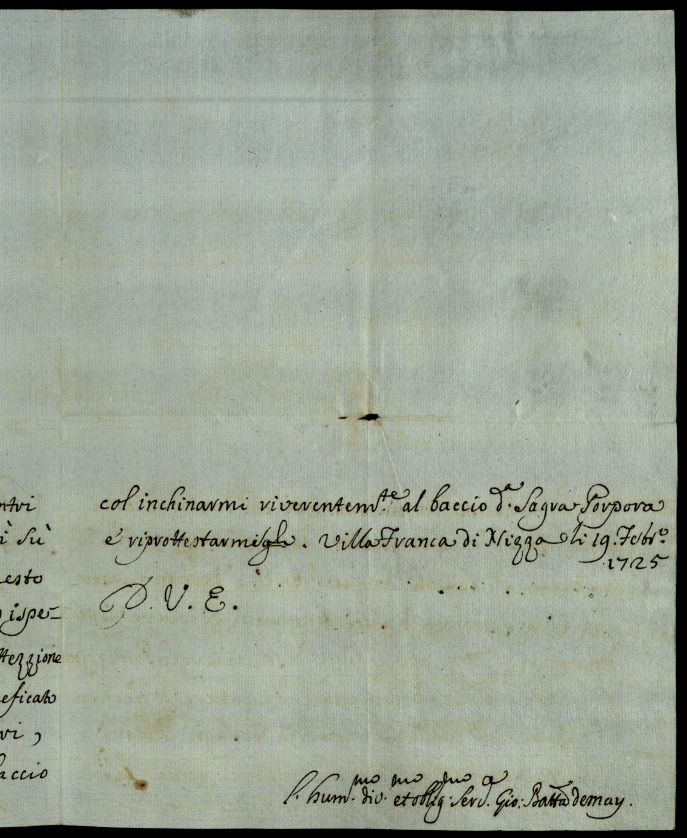 ntri
ì sù
esto
ispe-
ttezzione
eficato
vi,
accio
col inchinarmi riverentem.te al baccio d.a Sagra Porpora
e riprottestarmegli. Villa Franca di Nizza li 19. Febr.o
1725
D. V. E.
l'hum.mo div.mo et oblig.mo Ser.e Gio: Batta demay.